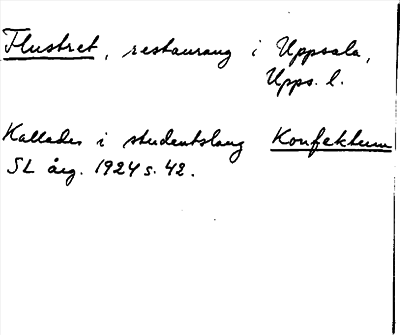 Flustret, restaurang i Uppsala,
Upps. l.
Kallades i studentslang Konfekteum
SL årg. 1924 s. 42.